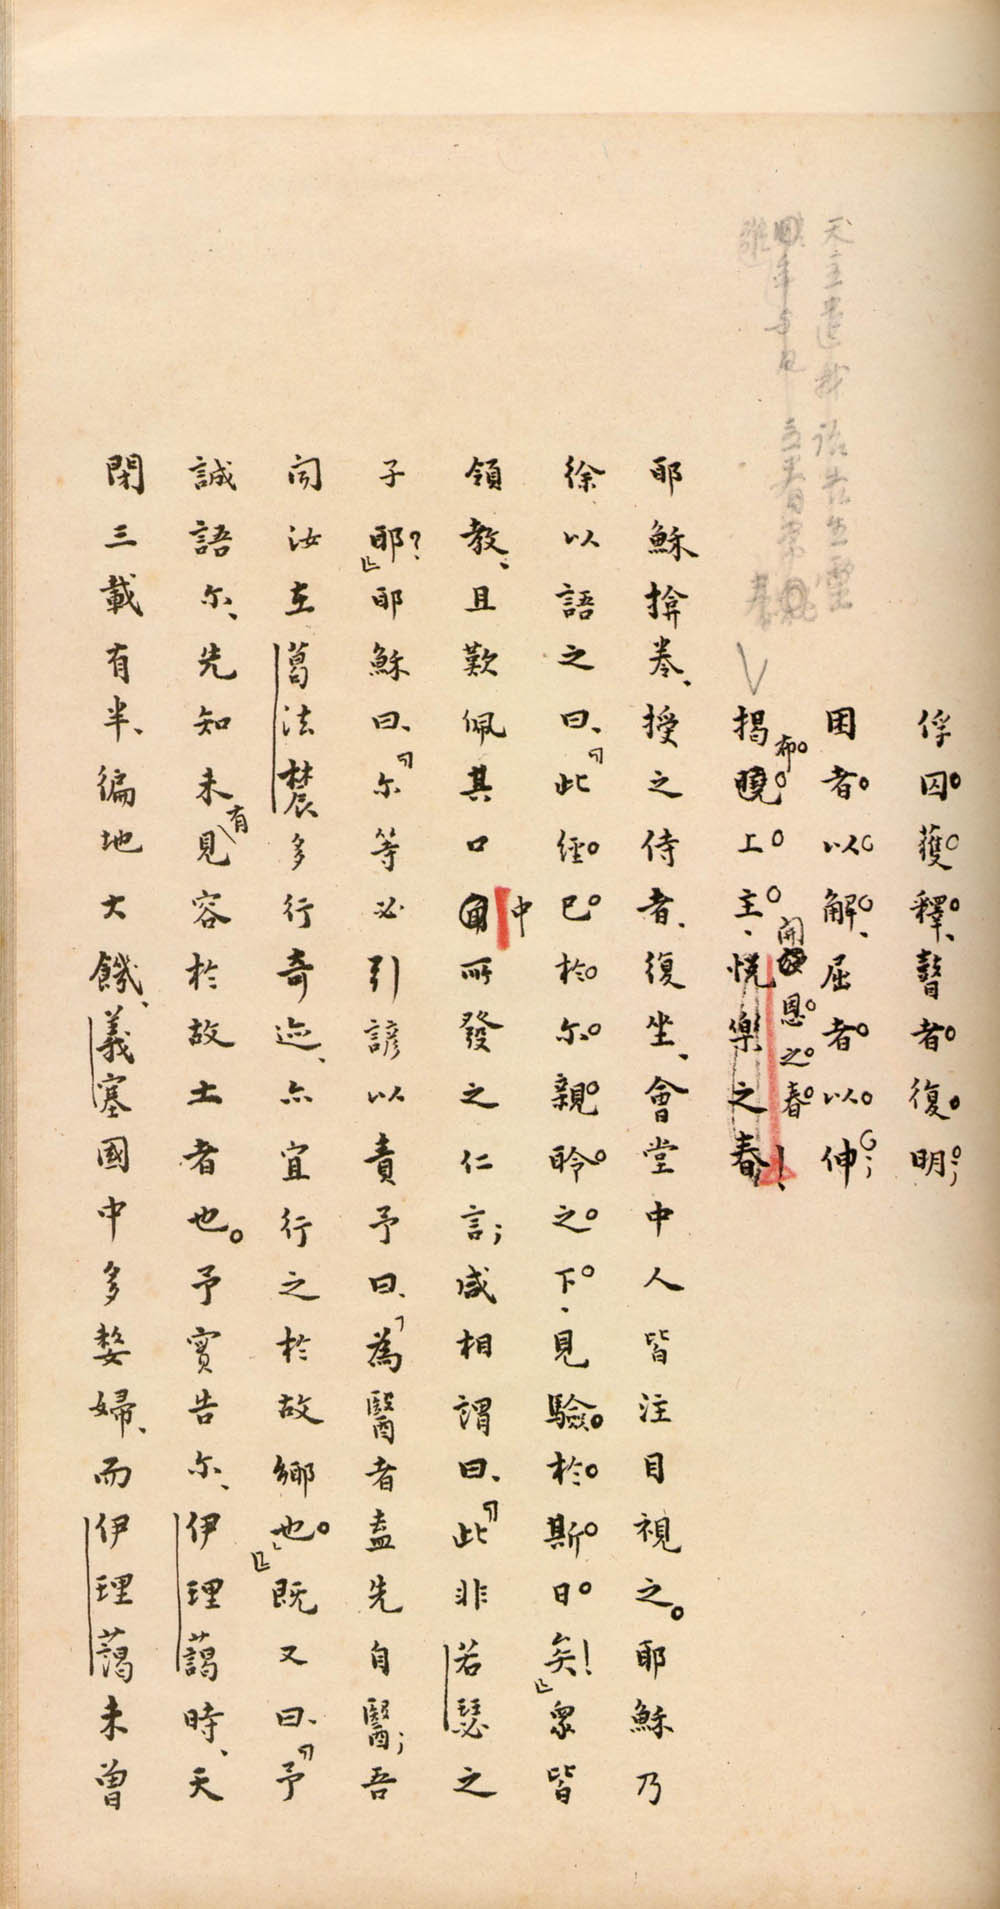 俘囚獲釋、瞽者復明；
困者以解、屈者以伸；
揭曉上主、悅樂之春！
布
開恩之春
耶穌揜卷、授之侍者、復坐、會堂中人皆注目視之。耶穌乃
徐以語之曰、『此經已於尔親聆之下、見驗於斯日矣！』眾皆
領教、且歎佩其口中所發之仁言；咸相謂曰、『此非若瑟之
子耶？』耶穌曰、『尔等必引諺以責予曰、「為醫者盍先自醫；吾
聞汝在葛法農多行奇迹、亦宜行之於故鄉也。」』既又曰、『予
誠語尔、先知未有見容於故土者也。予實告尔、伊理藹時、天
閉三載有半、徧地大饑、義塞國中多嫠婦、而伊理藹未曾
天主遣我詔告生靈
年 春